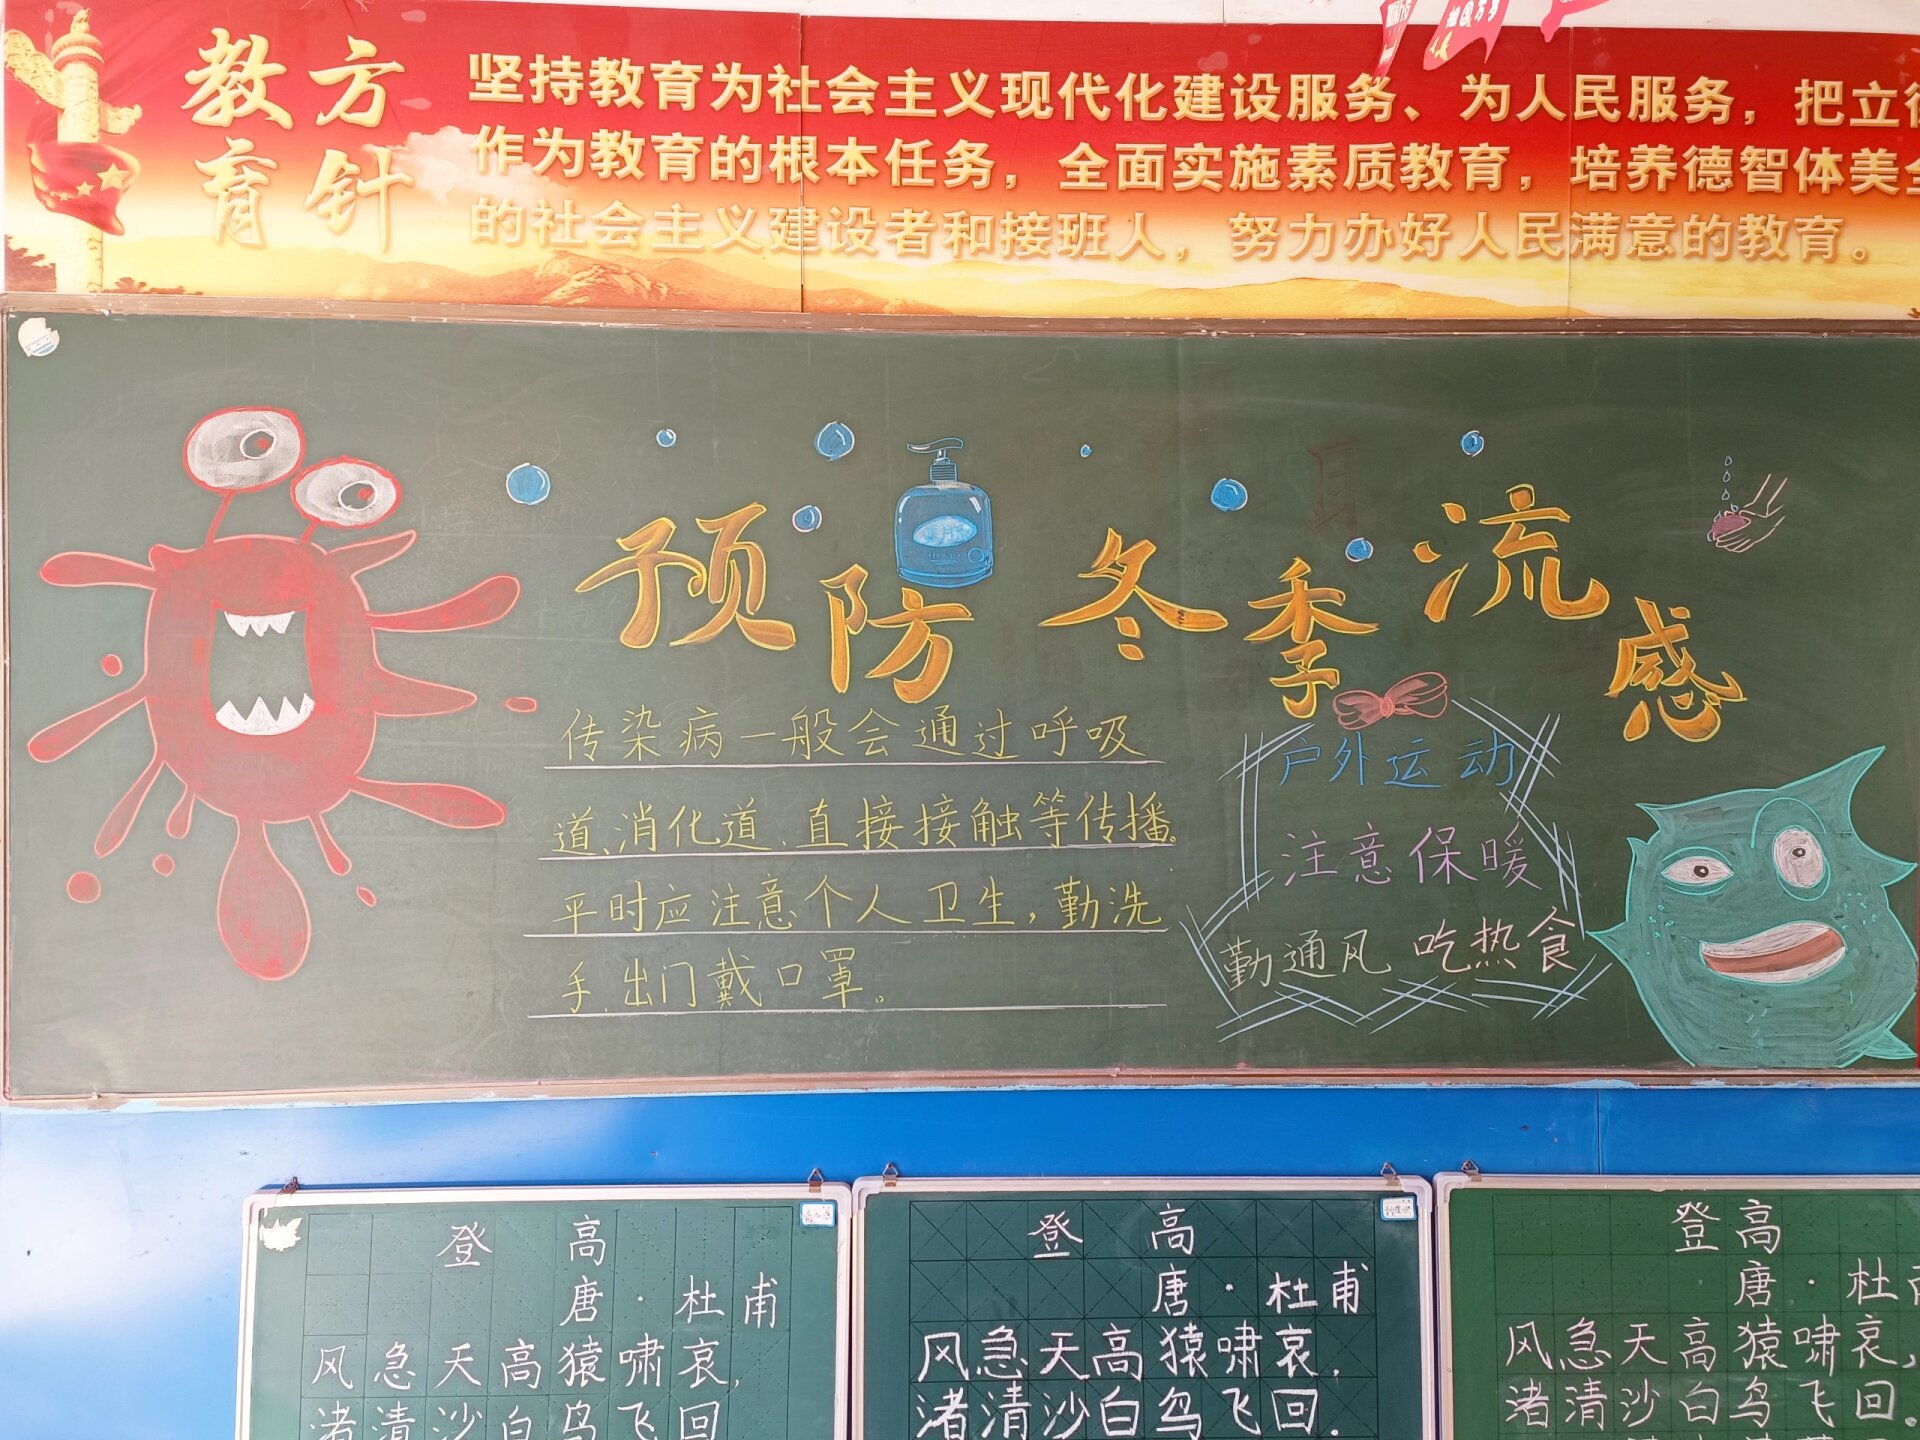 教育方针
坚持教育为社会主义现代化建设服务、为人民服务，把立
作为教育的根本任务，全面实施素质教育，培养德智体美
的社会主义建设者和接班人，努力办好人民满意的教育。
预防冬季流感
传染病一般会通过呼吸
道、消化道、直接接触等传播。
平时应注意个人卫生，勤洗
手、出门戴口罩。
户外运动
注意保暖
勤通风 吃热食
登高
唐·杜甫
风急天高猿啸哀，
渚清沙白鸟飞回
登高
唐·杜甫
风急天高猿啸哀，
渚清沙白鸟飞回.
登高
唐·杜甫
风急天高猿啸哀，
渚清沙白鸟飞回.